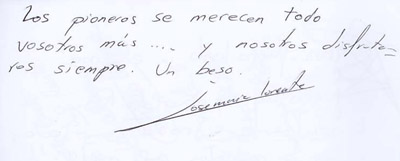 Los pioneros se merecen todo
vosotros más .... y nosotros disfruta=
ros siempre. Un beso.
Josemaria